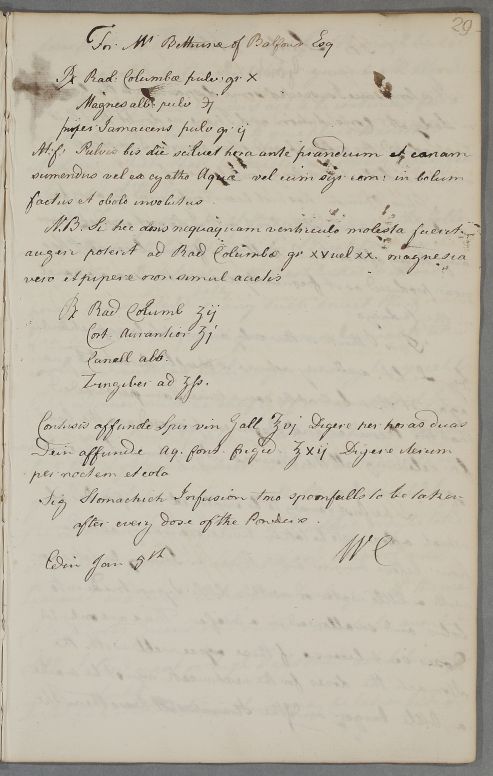 29
For Mr Bethune of Balfour Esq
℞ Rad: Columbæ pulv: gr X
Magnes alb: pulv ℈j
piper Jamaicens pulv gr ij
M. f. Pulvis bis die scilicet hora ante prandium et cænam
sumendus vel ex cyatho Aquæ vel cum syr: com: in bolum
factus et obolo involutus.
N.B. Si hec dosis nequaquam ventriculo molesta fuerit
augeri poterit ad Rad Columbæ gr XV vel XX. magnesia
vero et pipere non simul auctis
℞ Rad Columb ʒij
Cort. Aurantior ʒj
Canell alb.
Zingiber aa ʒſs.
Contusis affunde Spir vin Gall ℥vj Digere per horas duas
Dein affunde Aq. font. frigid ℥xij Digere iterum
per noctem et cola
Sig Stomachich Infusion two spoonfulls to be taken
after every dose of the Powders.
Edin Jan 9th
WC